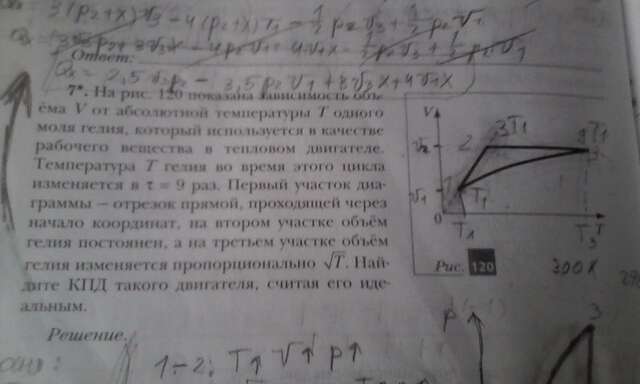 3(p₂+x)V₃ - 4(p₂+x)V₁ = ½ p₂V₃ + ½ p₂V₁
Ответ:
Qₓ = 2,5 V₃p₂ - 3,5 p₂V₁ + 3V₃x + 4V₁x
7*. На рис. 120 показана зависимость объ-
ёма V от абсолютной температуры T одного
моля гелия, который используется в качестве
рабочего вещества в тепловом двигателе.
Температура T гелия во время этого цикла
изменяется в τ = 9 раз. Первый участок диа-
граммы — отрезок прямой, проходящей через
начало координат, на втором участке объём
гелия постоянен, а на третьем участке объём
гелия изменяется пропорционально √T. Най-
дите КПД такого двигателя, считая его иде-
альным.
V
2 3T₁ 9T₁
V₂
3
V₁ 1 T₁
0 T₁ T₃ T
Рис. 120
300К
Решение.
p 3
1-2: T↑ V↑ p↑